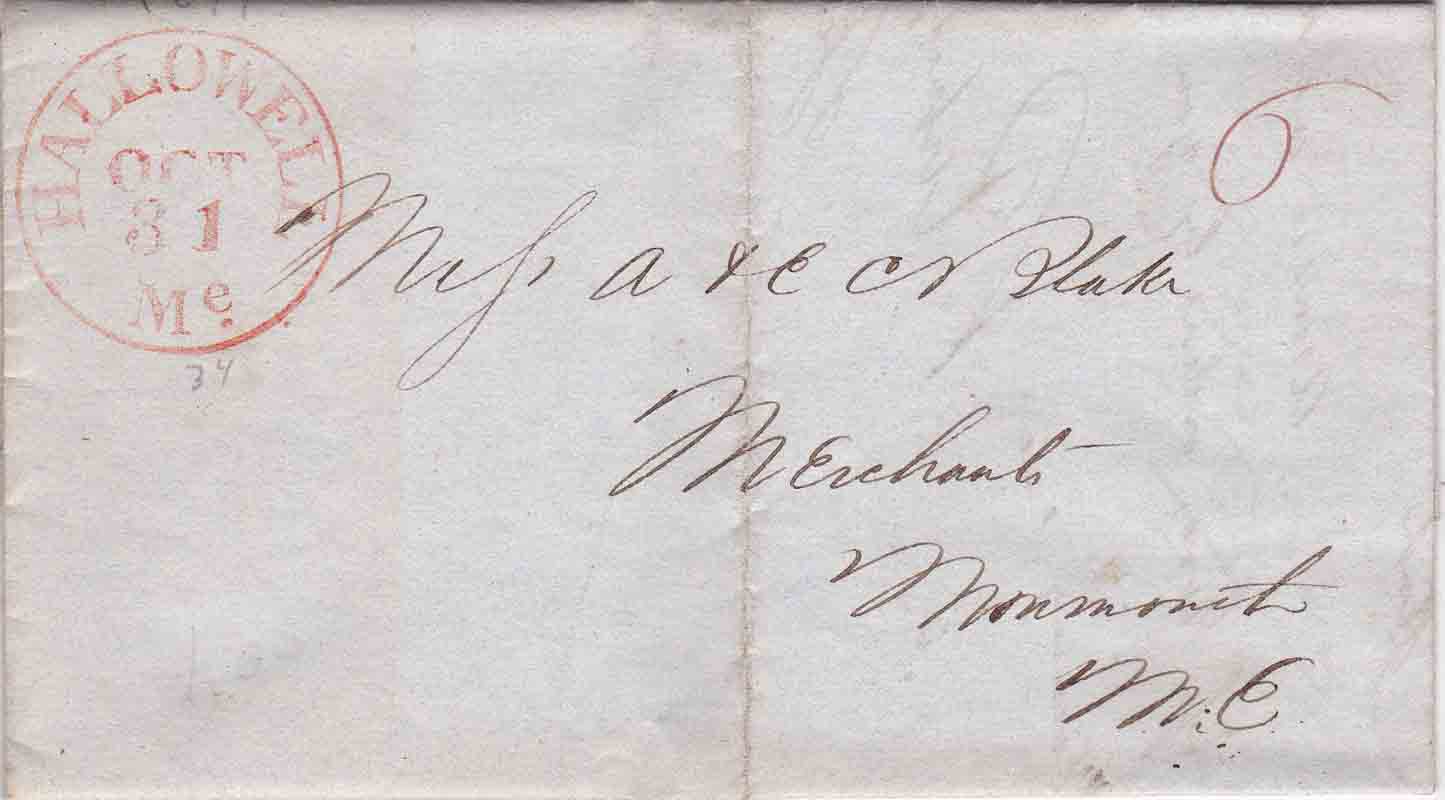 HALLOWELL
OCT
31
Me.
6
34
Mess A & E C N Blake
Merchants
Monmouth
M.E.